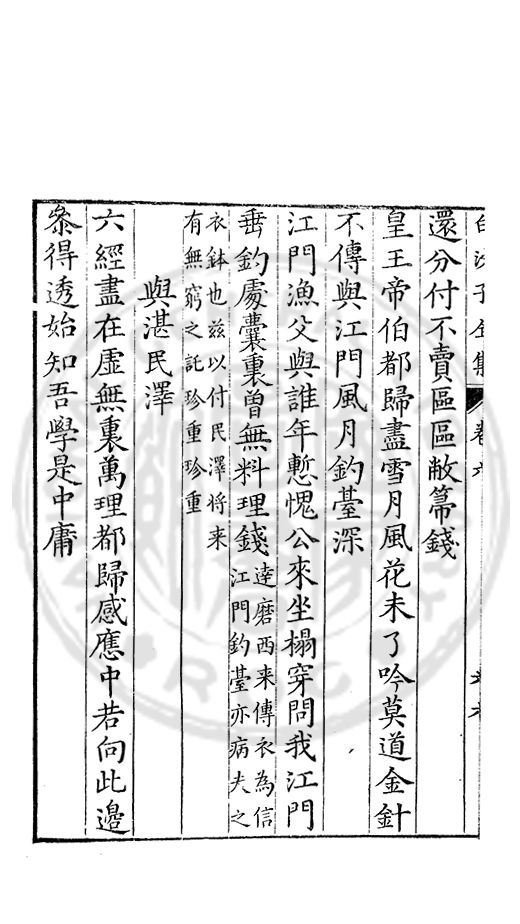 白沙子全集 卷六
還分付不賣區區敝帚錢
皇王帝伯都歸盡雪月風花未了吟莫道金針
不傳與江門風月釣臺深
江門漁父與誰年慙愧公來坐榻穿問我江門
垂釣處囊裏曾無料理錢達磨西来傳衣為信
江門釣臺亦病夫之
衣鉢也兹以付民澤將来
有無窮之託珍重珍重
與湛民澤
六經盡在虛無裏萬理都歸感應中若向此邊
叅得透始知吾學是中庸